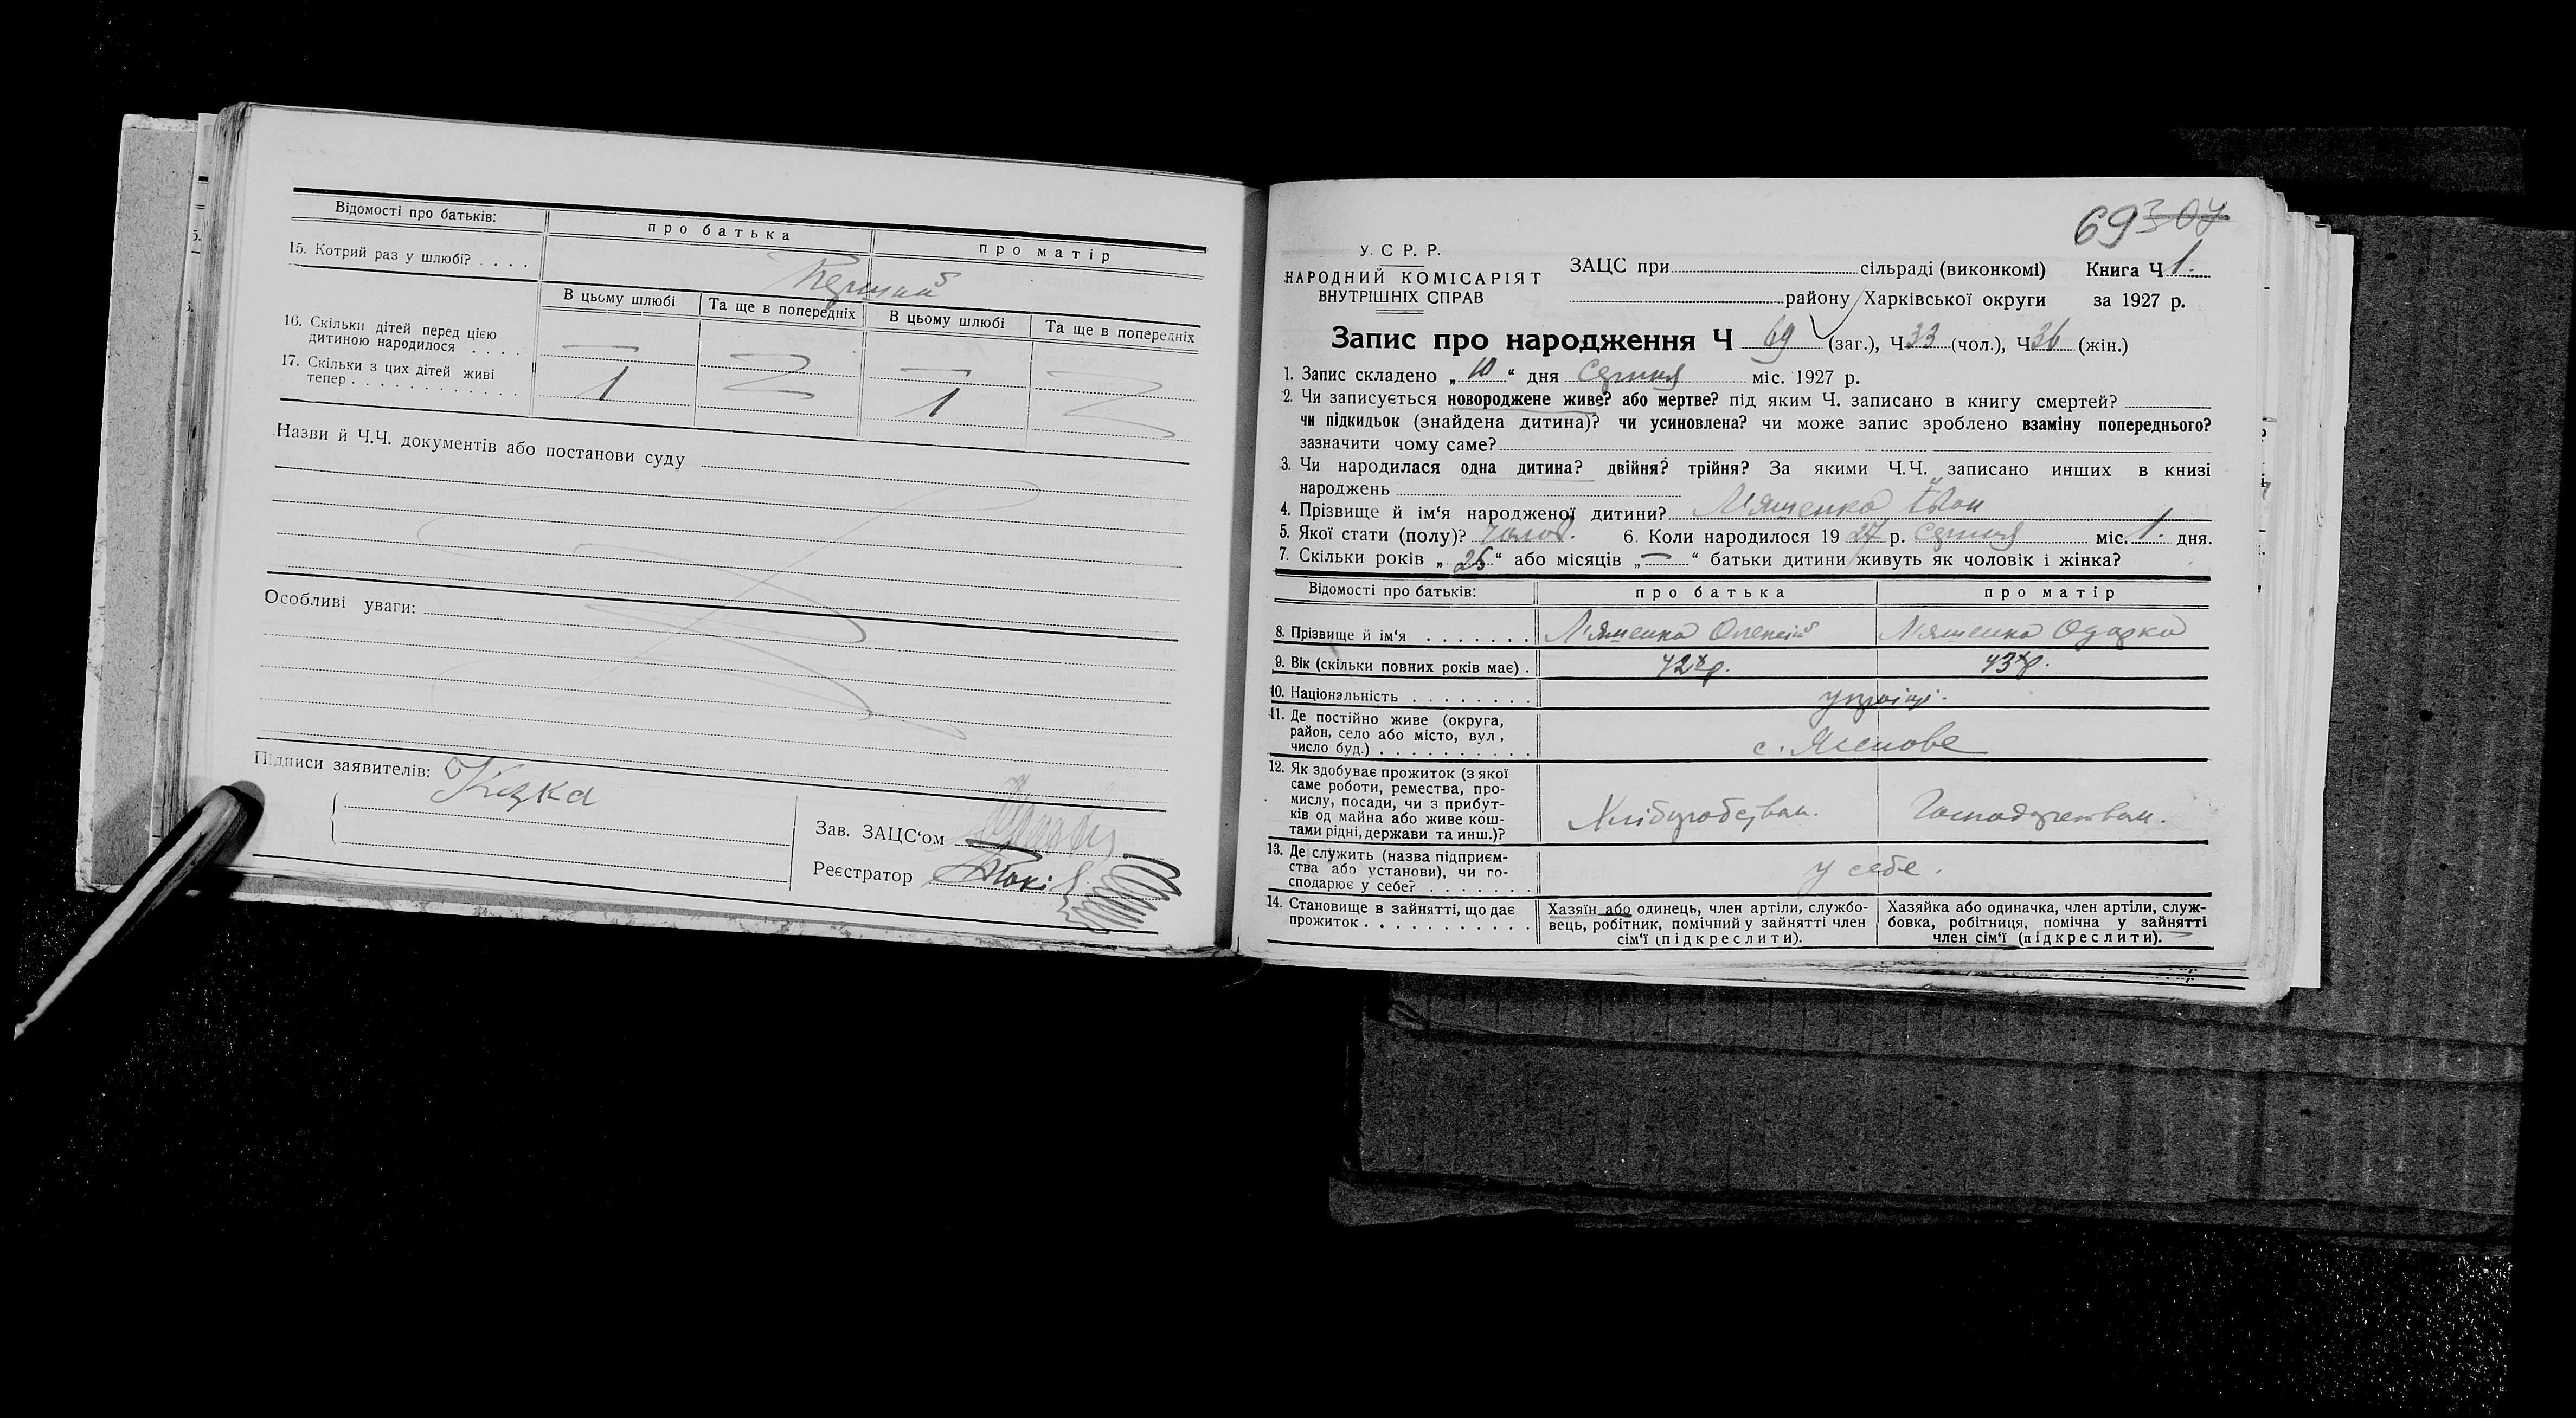 Відомості про батьків:
про батька
про матір
15. Котрий раз у шлюбі? . . . .
Перший
В цьому шлюбі
Та ще в попередніх
В цьому шлюбі
Та ще в попередніх
16. Скільки дітей перед цією
дитиною народилося . . . .
— —
17. Скільки з цих дітей живі
тепер . . . . . . . . . . . .
1 1
Назви й Ч.Ч. документів або постанови суду
Особливі уваги:
Підписи заявителів:
Зав. ЗАЦС‘ом
Реєстратор
69 307
У. С Р. Р.
НАРОДНИЙ КОМІСАРІЯТ
ВНУТРІШНІХ СПРАВ
ЗАЦС при сільраді (виконкомі) Книга Ч 1.
району Харківської округи за 1927 р.
Запис про народження Ч 69 (заг.), Ч 33 (чол.), Ч 36 (жін.)
1. Запис складено „ 10 “ дня Серпня міс. 1927 р.
2. Чи записується новороджене живе? або мертве? під яким Ч. записано в книгу смертей?
чи підкидьок (знайдена дитина)? чи усиновлена? чи може запис зроблено взаміну попереднього?
зазначити чому саме?
3. Чи народилася одна дитина? двійня? трійня? За якими Ч.Ч. записано инших в книзі
народжень
4. Прізвище й ім‘я народженої дитини? Ляшенко Іван
5. Якої стати (полу)? Чолов. 6. Коли народилось 19 27 р. Серпня міс. 1. дня.
7. Скільки років „ 25 “ або місяців „ — “ батьки дитини живуть як чоловік і жінка?
Відомості про батьків:
про батька
про матір
8. Прізвище й ім‘я . . . . . . . Ляшенко Олексій Ляшенко Одарка
9. Вік (скільки повних років має) . 42 р. 43 р.
10. Національність . . . . . . . . україці.
11. Де постійно живе (округа,
район, село або місто, вул,
число буд.) . . . . . . . . . .
12. Як здобуває прожиток (з якої
саме роботи, ремества, про-
мислу, посади, чи з прибут-
ків од майна або живе кош-
тами рідні, держави та инш.)?
Хліборобством.
13. Де служить (назва підприєм-
ства або установи), чи го-
сподарює у себе? . . . . . . .
у себе.
14. Становище в зайнятті, що дає
прожиток . . . . . . . . . . .
Хазяїн або одинець, член артіли, службо-
вець, робітник, помічний у зайнятті член
сім‘ї (підкреслити).
Хазяйка або одиначка, член артіли, служ-
бовка, робітниця, помічна у зайнятті
член сім‘ї (підкреслити).